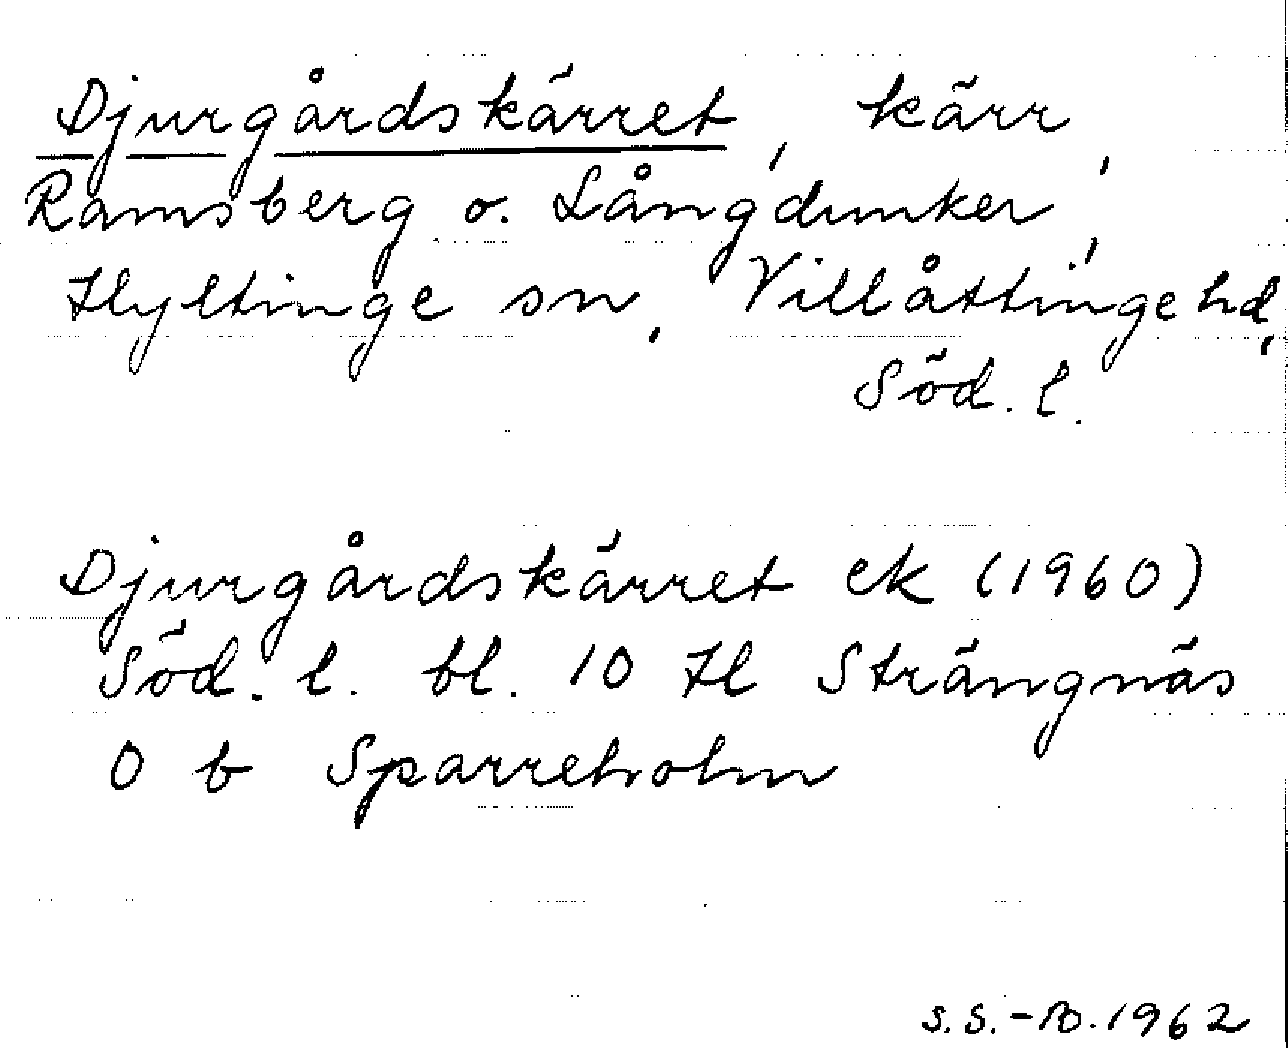 Djurgårdskärret, kärr,
Ramsberg o. Långdunker,
Hyltinge sn, Villåttinge hd,
Söd. l.
Djurgårdskärret ek (1960)
Söd. l. bl. 10 H Strängnäs
0 b Sparreholm
S.S.-B. 1962